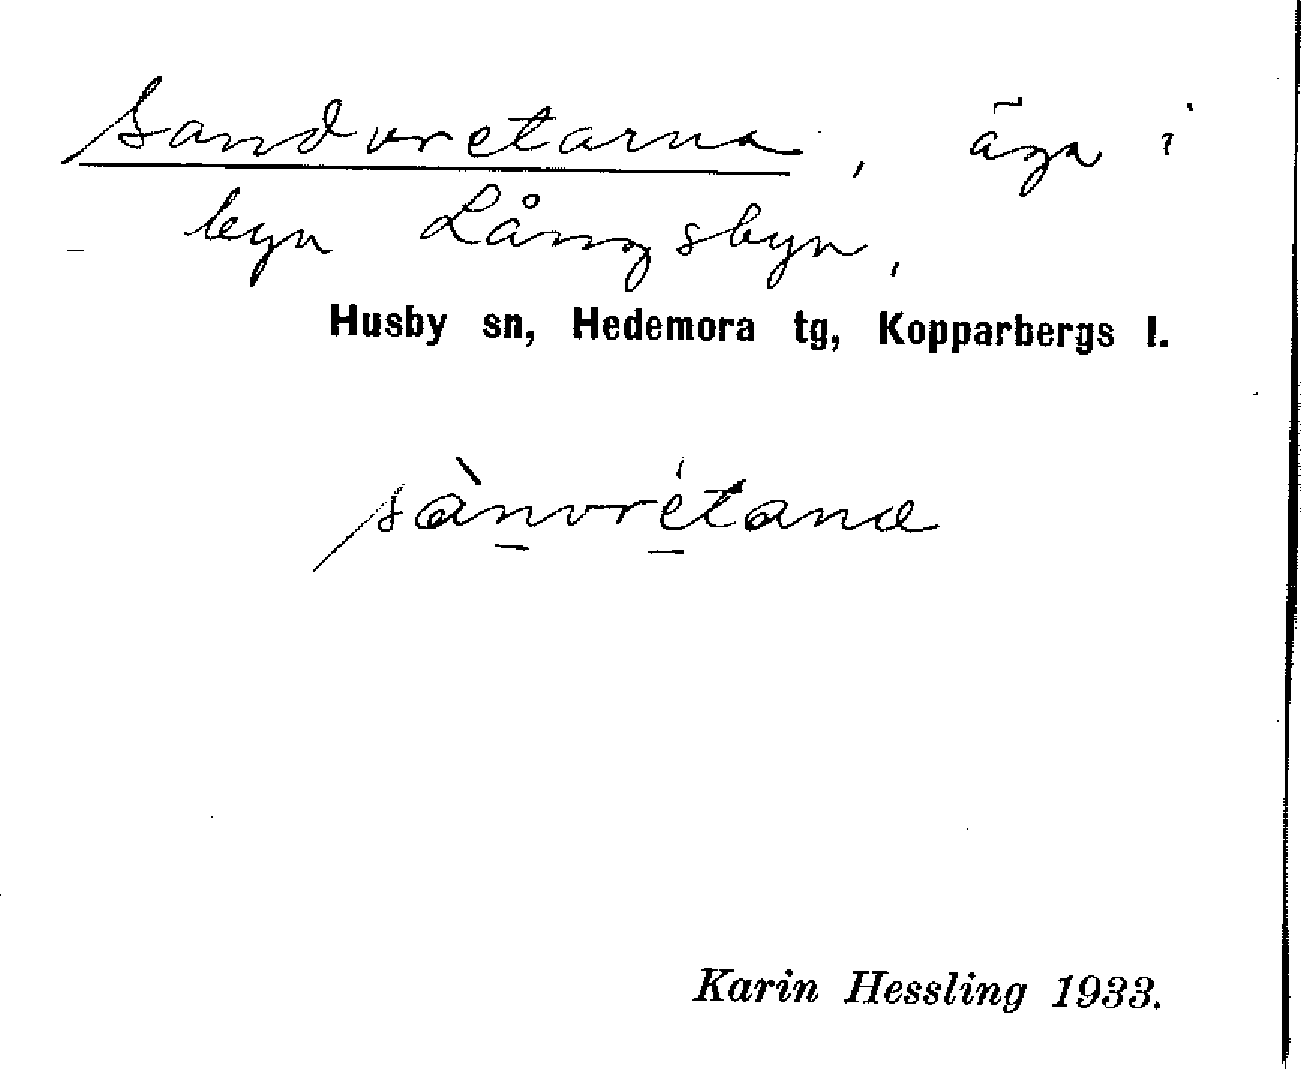 Sandvretarna, äga i
byn Långsbyn,
Husby sn, Hedemora tg, Kopparbergs l.
sànvrétana
Karin Hessling 1933.